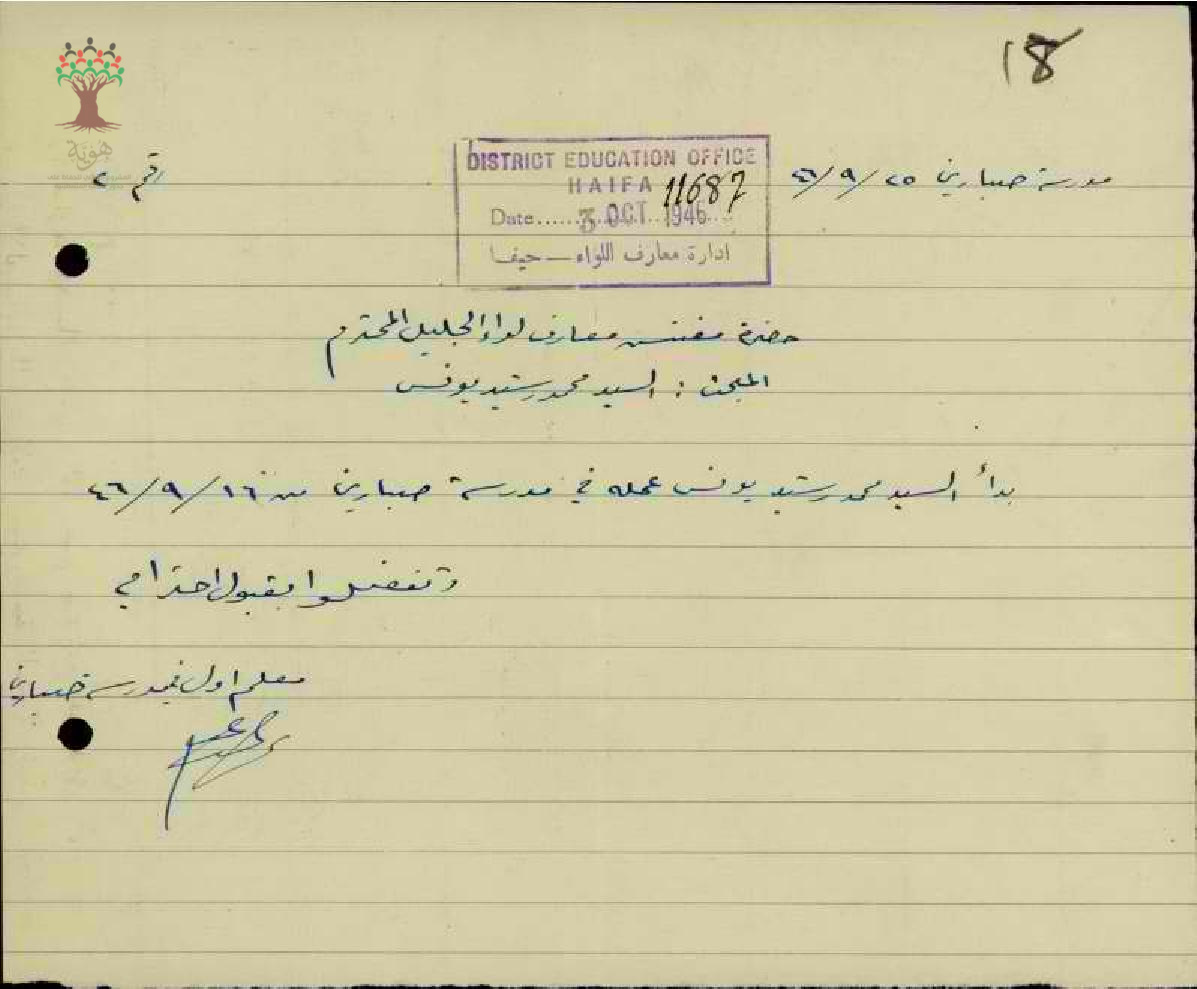 18
هوية
مدرسة صبارين ٢٥/٩/٤٦
رقم ٢
DISTRICT EDUCATION OFFICE
HAIFA 11687
Date...... 3 OCT 1946...
ادارة معارف اللواء — حيفا
حضرة مفتش معارف لواء الجليل المحترم
المبحث : السيد محمد رشيد يونس
بدأ السيد محمد رشيد يونس عمله في مدرسة صبارين من ١٦/٩/٤٦
وتفضلوا بقبول احترامي
معلم اول مدرسة صبارين